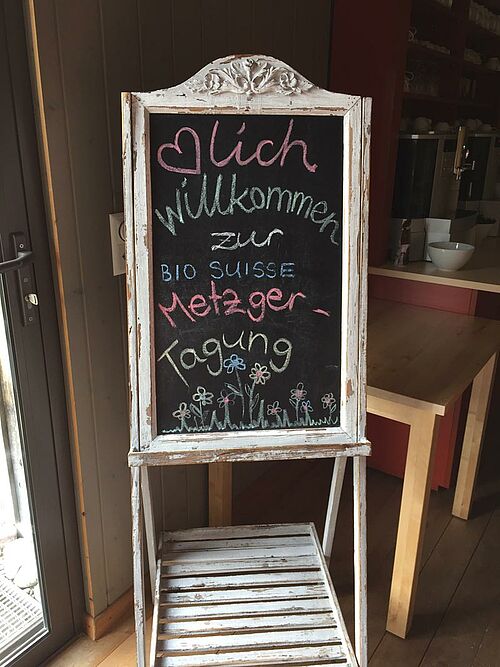 ♡lich
Willkommen
zur
BIO SUISSE
Metzger-
Tagung